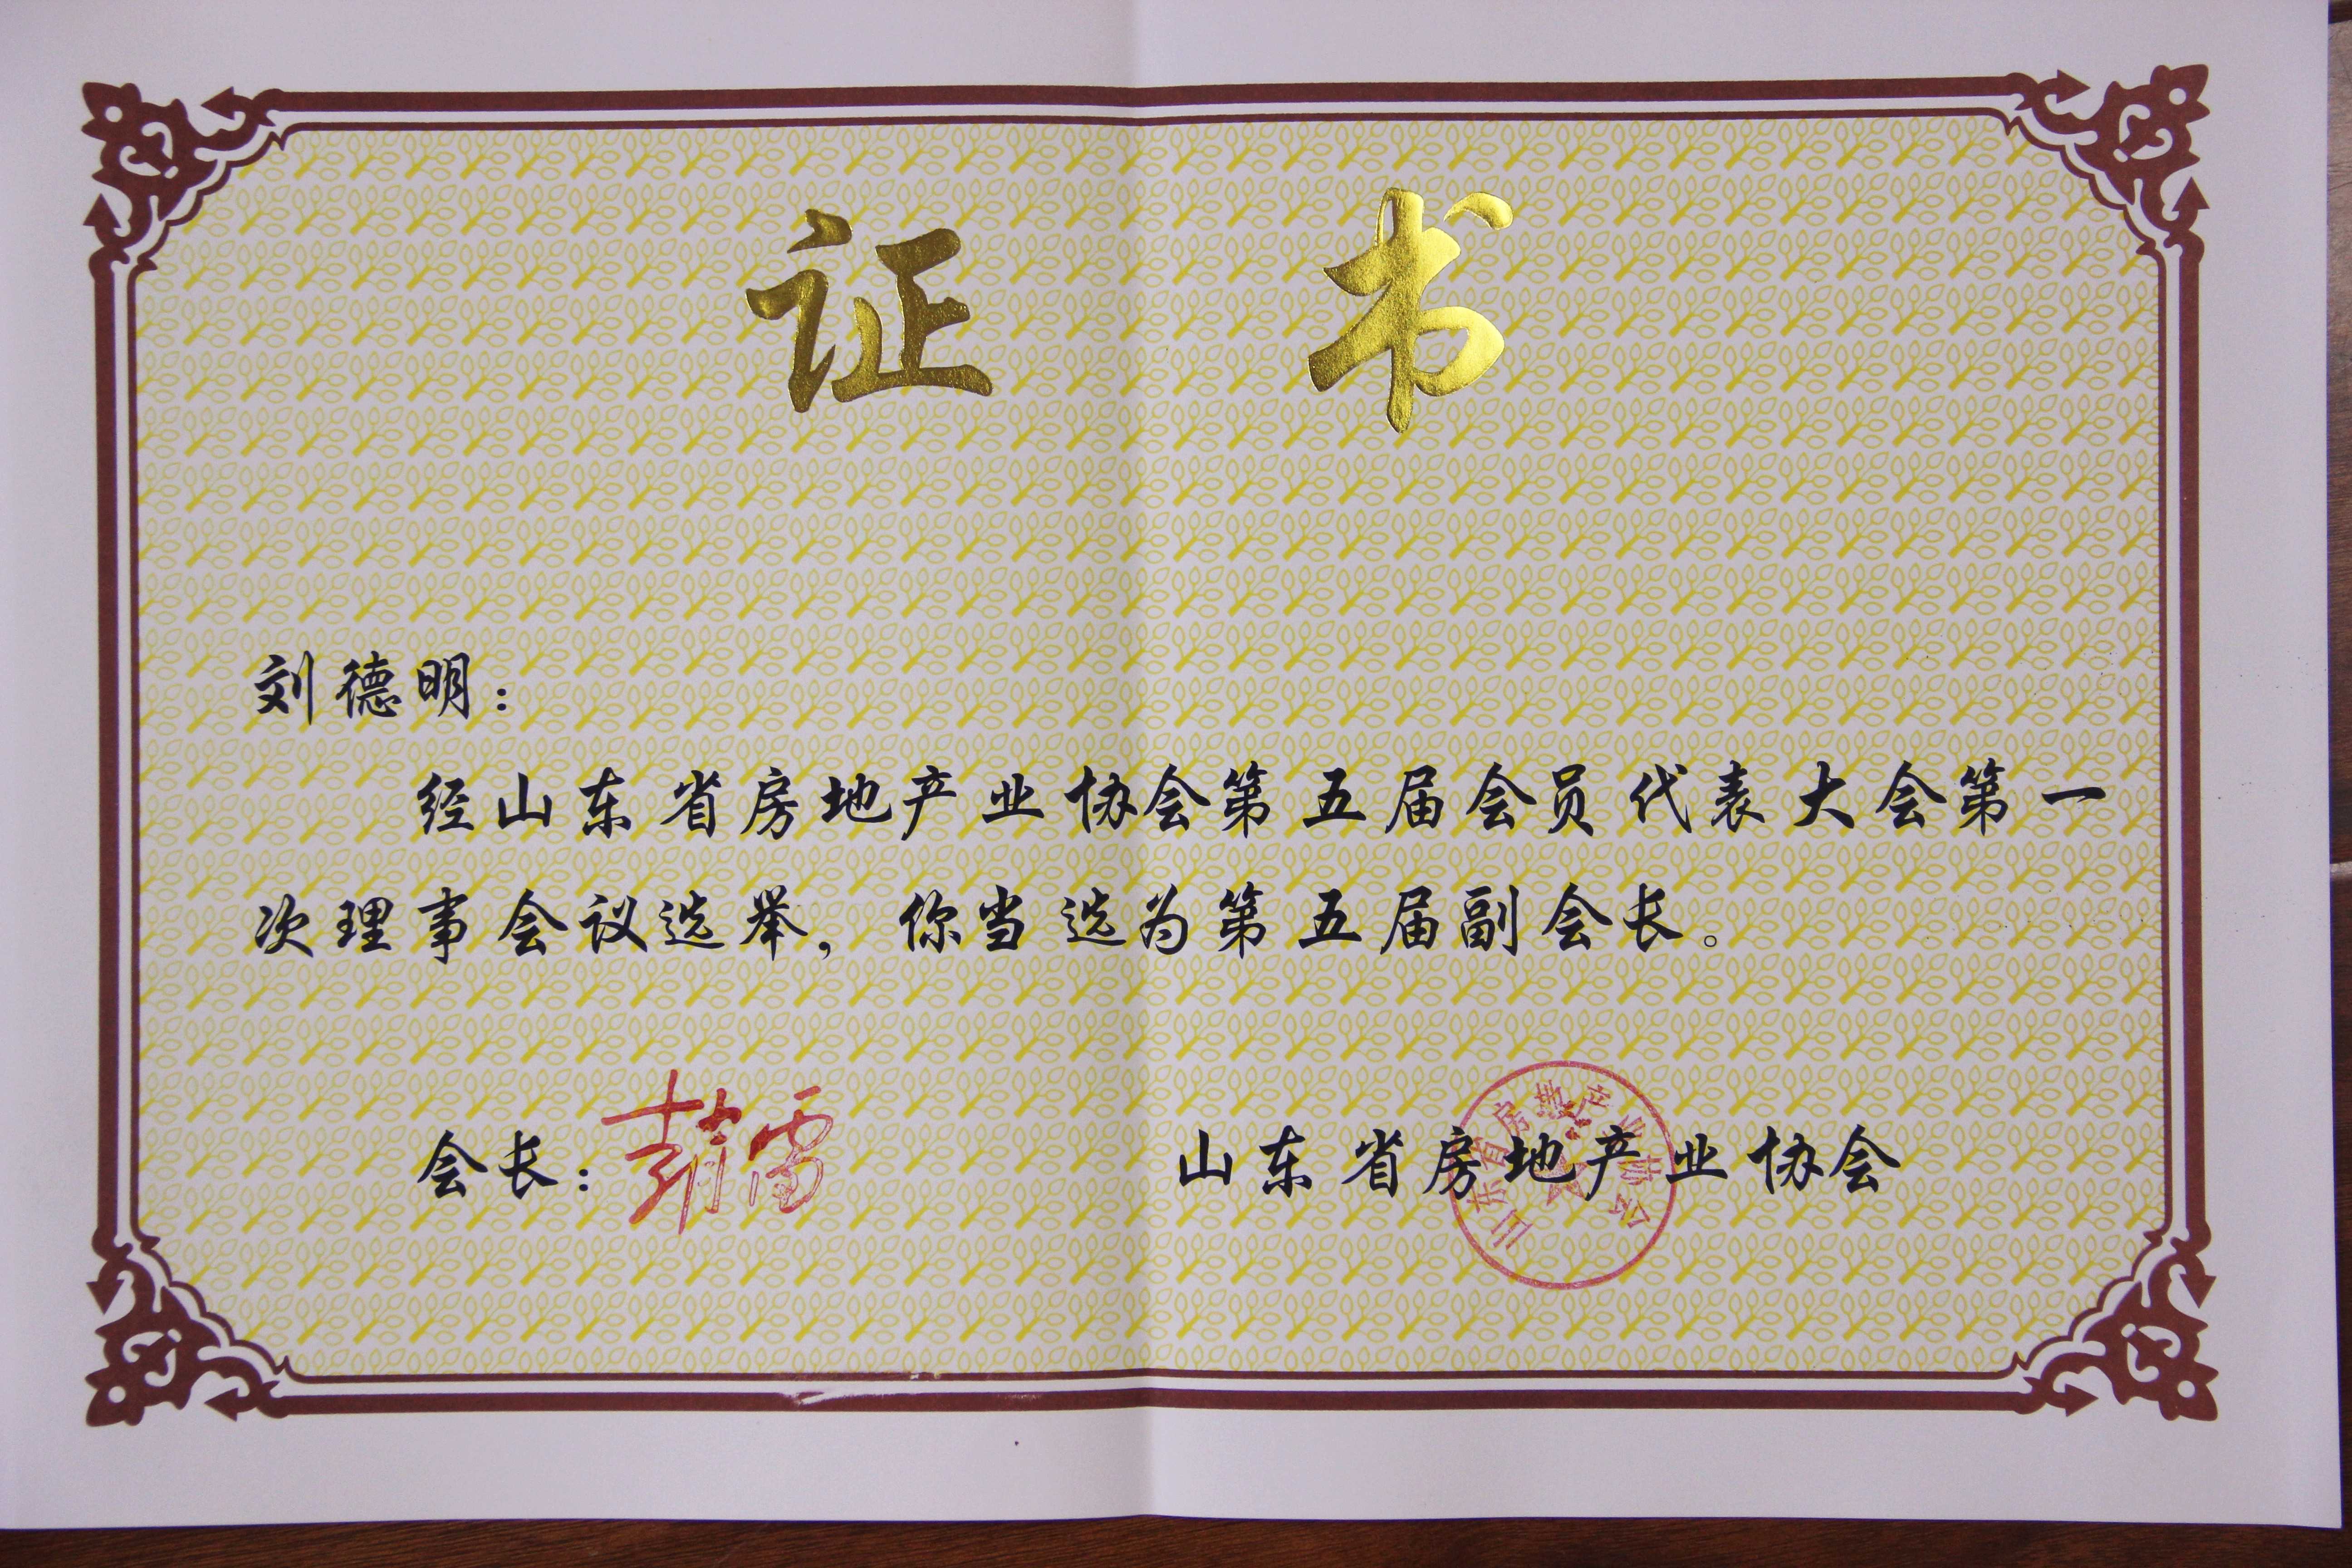 证书
刘德明：
经山东省房地产业协会第五届会员代表大会第一
次理事会议选举，你当选为第五届副会长。
会长：
山东省房地产业协会